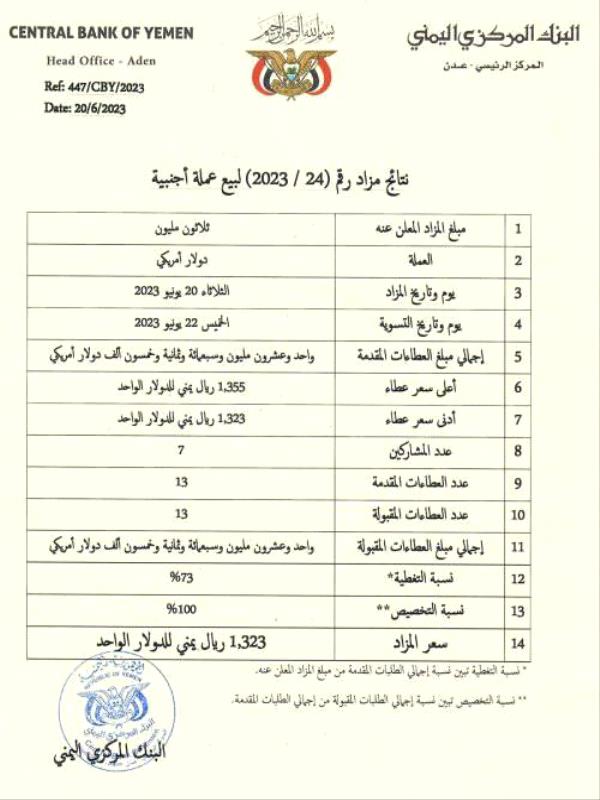 CENTRAL BANK OF YEMEN
Head Office - Aden
Ref: 447/CBY/2023
Date: 20/6/2023
بسم الله الرحمن الرحيم
البنك المركزي اليمني
المركز الرئيسي - عدن
نتائج مزاد رقم (24 / 2023) لبيع عملة أجنبية
1 مبلغ المزاد المعلن عنه ثلاثون مليون
2 العملة دولار أمريكي
3 يوم وتاريخ المزاد الثلاثاء 20 يونيو 2023
4 يوم وتاريخ التسوية الخميس 22 يونيو 2023
5 إجمالي مبلغ العطاءات المقدمة واحد وعشرون مليون وسبعمائة وثمانية وخمسون ألف دولار أمريكي
6 أعلى سعر عطاء 1,355 ريال يمني للدولار الواحد
7 أدنى سعر عطاء 1,323 ريال يمني للدولار الواحد
8 عدد المشاركين 7
9 عدد العطاءات المقدمة 13
10 عدد العطاءات المقبولة 13
11 إجمالي مبلغ العطاءات المقبولة واحد وعشرون مليون وسبعمائة وثمانية وخمسون ألف دولار أمريكي
12 نسبة التغطية* %73
13 نسبة التخصيص** %100
14 سعر المزاد 1,323 ريال يمني للدولار الواحد
* نسبة التغطية تبين نسبة إجمالي الطلبات المقدمة من مبلغ المزاد المعلن عنه.
** نسبة التخصيص تبين نسبة إجمالي الطلبات المقبولة من إجمالي الطلبات المقدمة.
REPUBLIC OF YEMEN
البنك المركزي اليمني
البنك المركزي اليمني